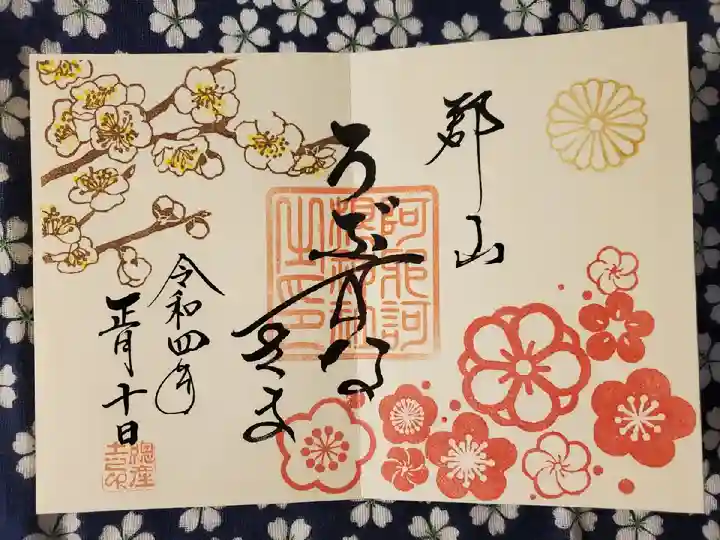 郡山
うぶすな
さま
阿邪訶
根神社
之印
令和四年
正月十日